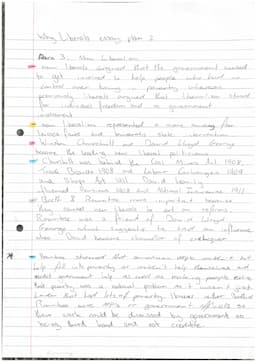 Why Liberals essay plan 2
Para 3: New Liberalism
new liberals argued that the government needed
to get involved to help people who had no
control over being in poverty whereas
previously liberals argued that liberalism stood
for individual freedom and no government
involvement
new liberalism represented a move away from
laissez faire and towards state intervention
Winston Churchill and David Lloyd George
became the leading new liberal politicians
Churchill was behind the Coal Mines Act 1908,
Trade Boards 1909 and Labour Exchanges 1909
and Shops Act 1911. David
Pensions 1908 and National Insurance 1911
Booth & Rowntree more important because
new liberals to act on reforms.
Rowntree was a friend of David Lloyd
George, which suggests to have an influence
when David became chancellor of exchequer
that sometimes people couldn't
help in poverty or couldn't help themselves and
needed government help as well as
that poverty was a national problem as it wasn't just
London that had lots of poverty. However neither Booth or
Rowntree were MPs or government officials so
their work could be dismissed by government as
being and not credible.